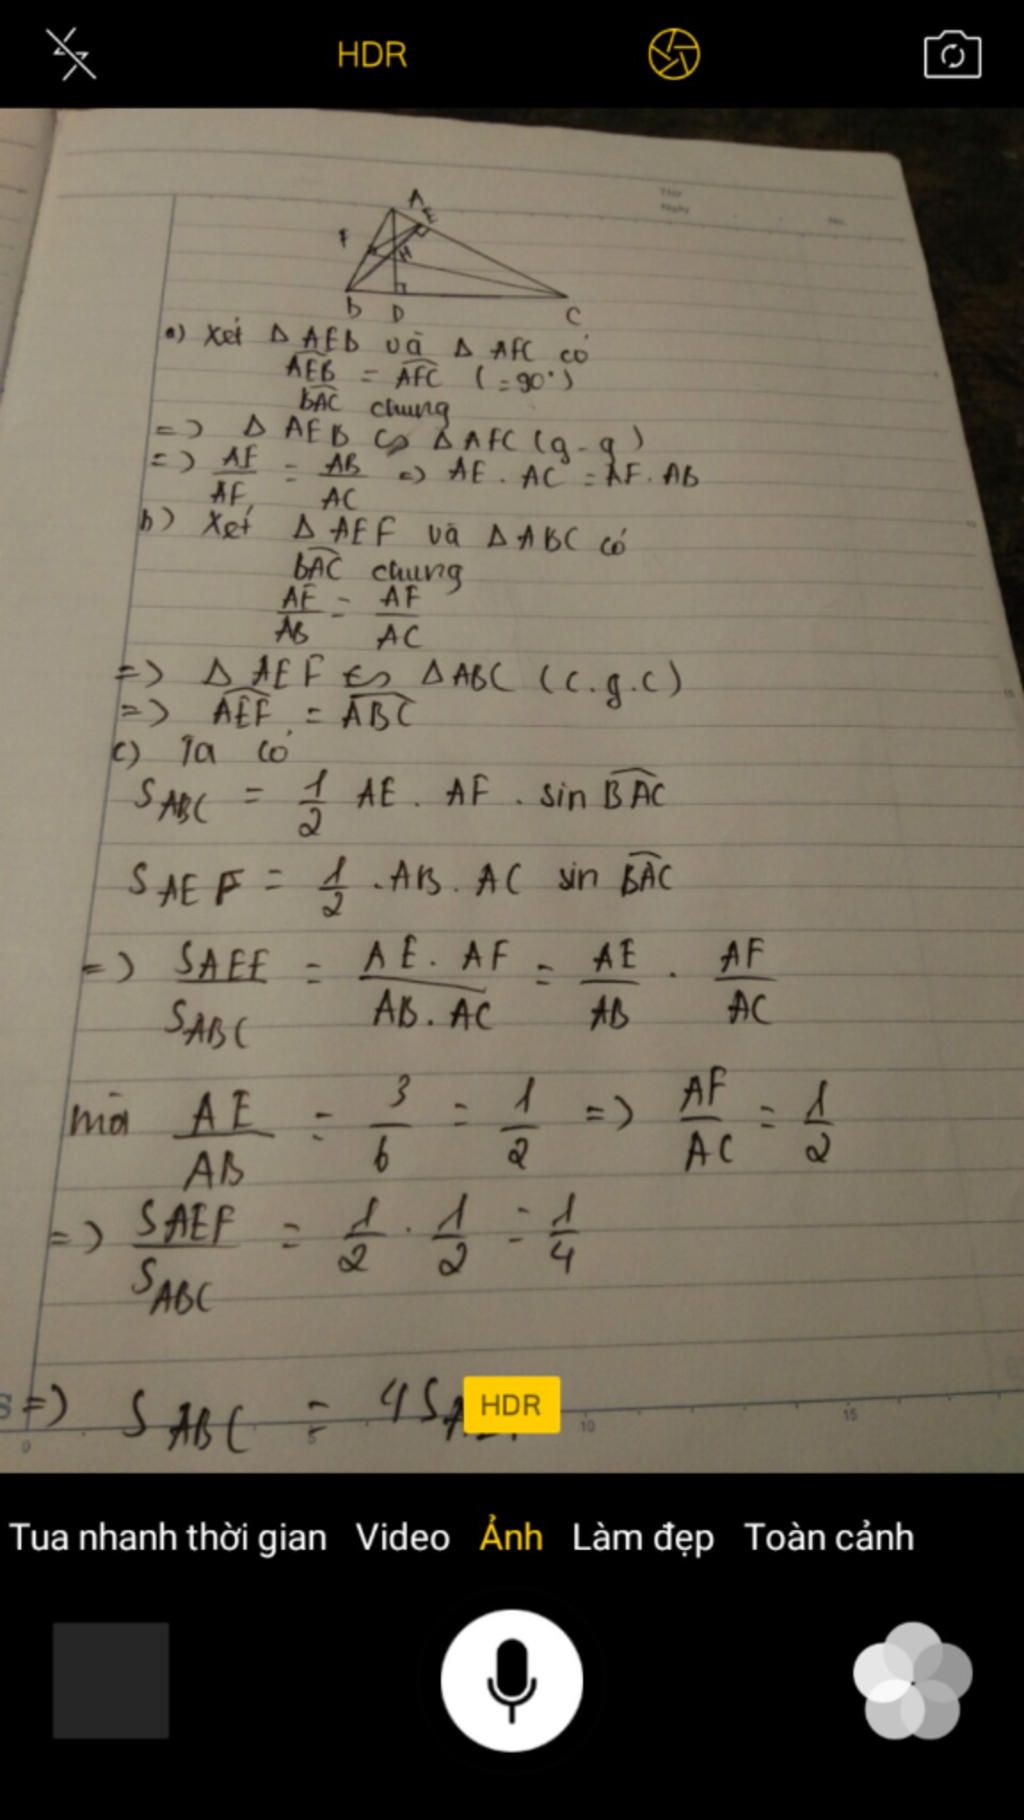 HDR
Thứ
Ngày
No.
A
E
F
H
B D C
a) Xét Δ AEB và Δ AFC có
AEB = AFC (=90°)
BAC chung
=> Δ AEB ∽ Δ AFC (g-g)
=> AE/AF = AB/AC => AE . AC = AF . AB
b) Xét Δ AEF và Δ ABC có
BAC chung
AE/AB = AF/AC
=> Δ AEF ∽ Δ ABC (c.g.c)
=> AEF = ABC
c) Ta có
S ABC = 1/2 AE . AF . sin BAC
S AEF = 1/2 . AB . AC sin BAC
=> SAEF/SABC = AE . AF/AB . AC = AE/AB . AF/AC
mà AE/AB = 3/6 = 1/2 => AF/AC = 1/2
=> SAEF/SABC = 1/2 . 1/2 = 1/4
=> S ABC = 4S
HDR
0 5 10 15
Tua nhanh thời gian Video Ảnh Làm đẹp Toàn cảnh